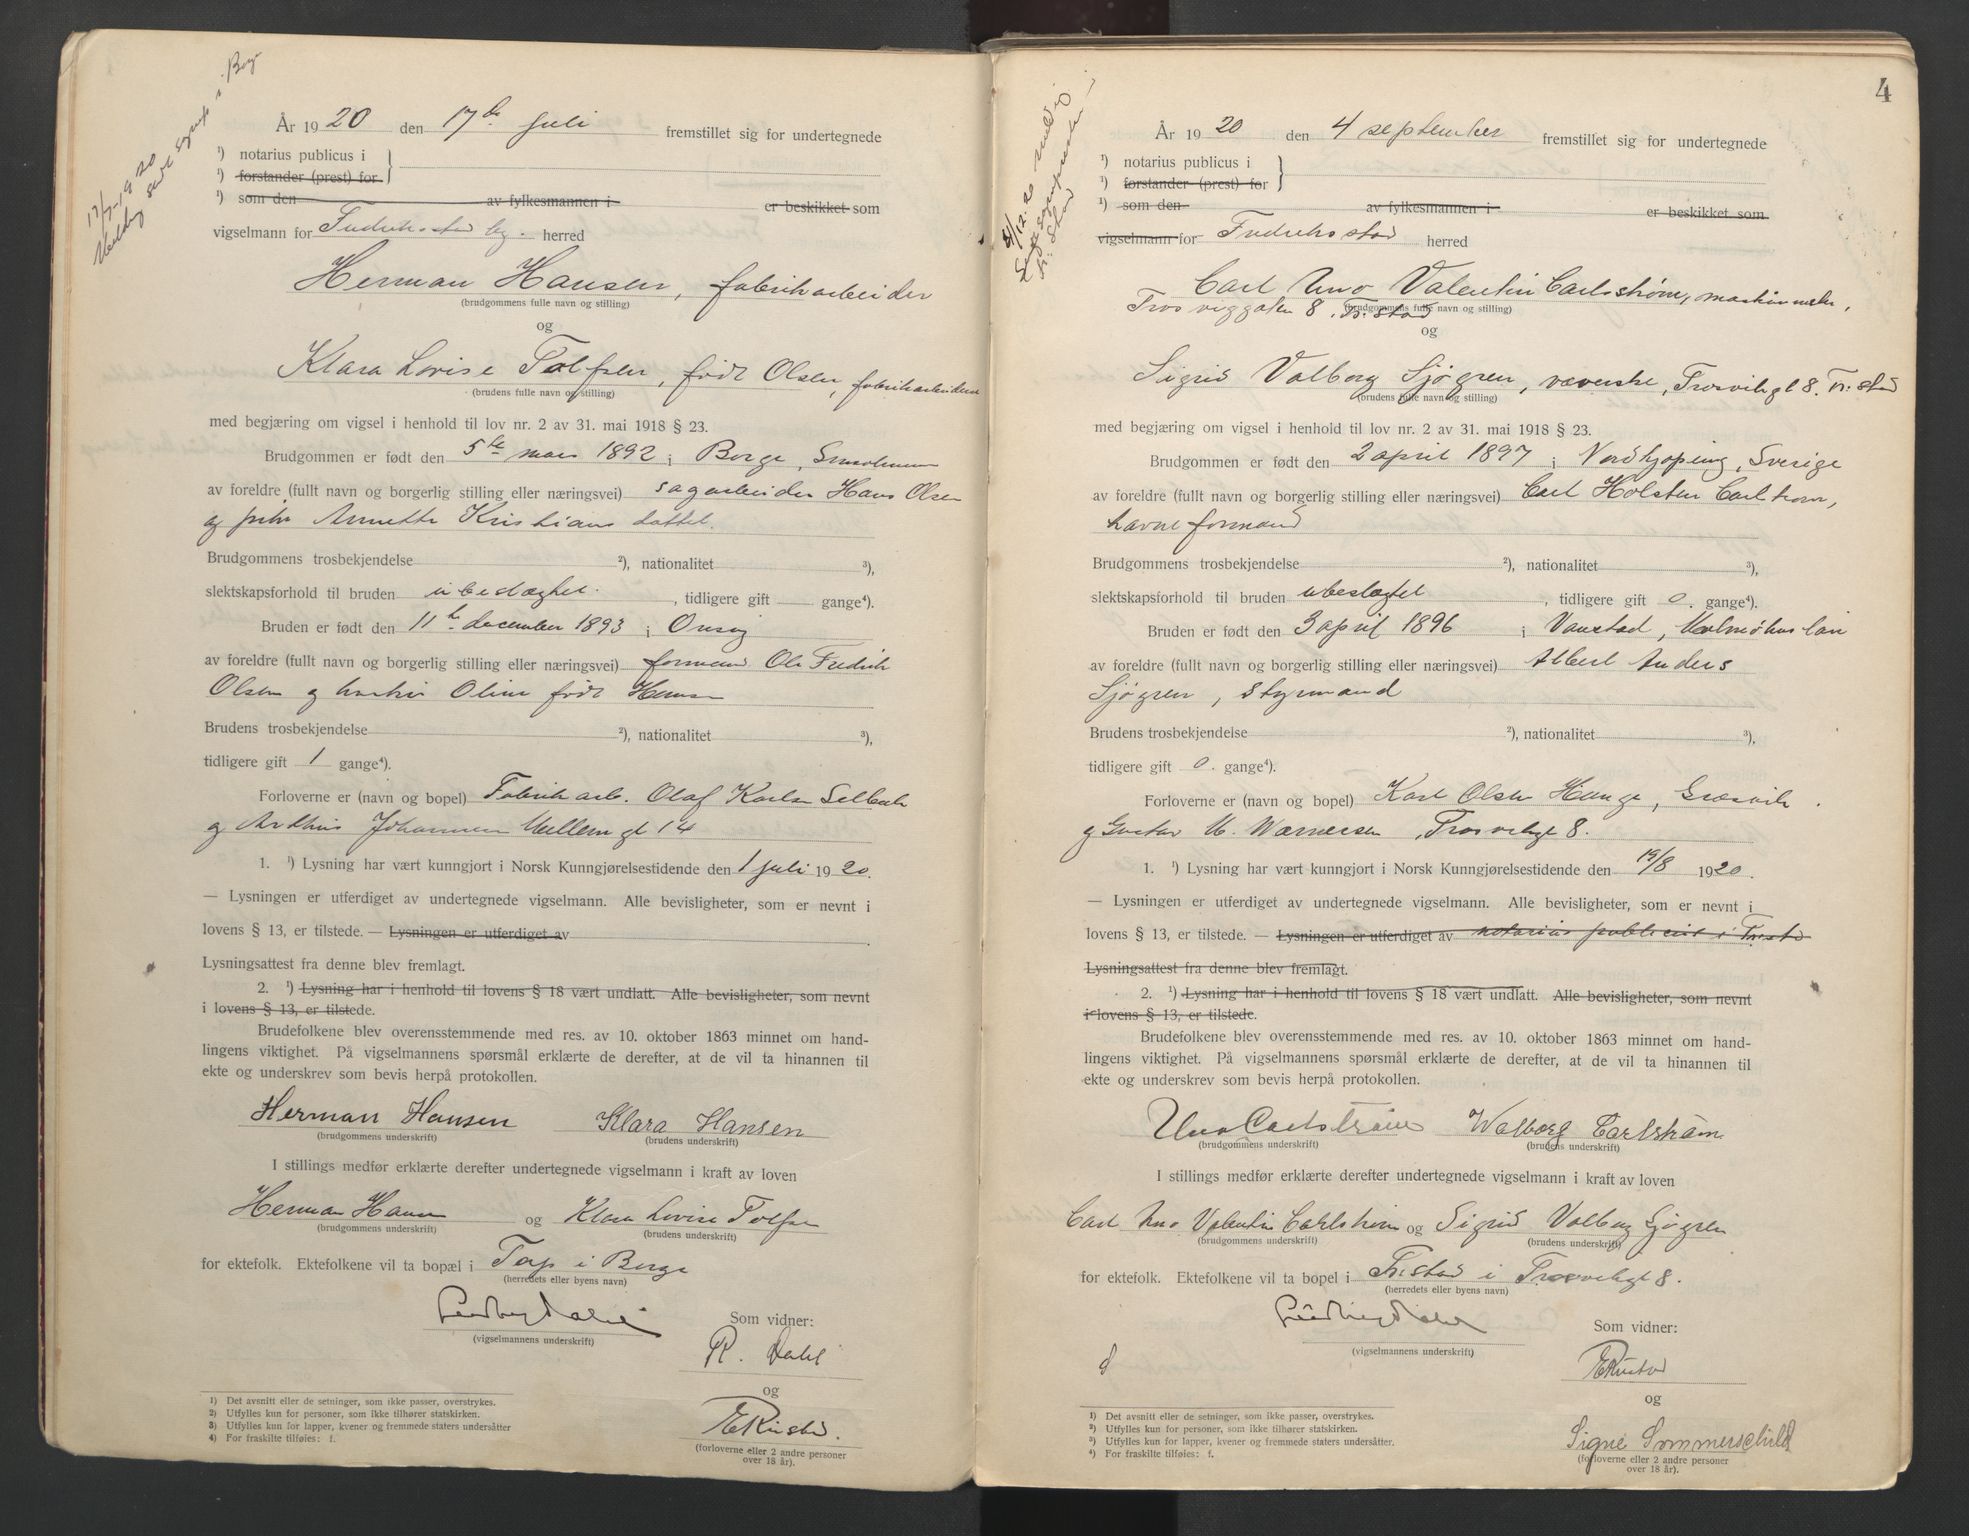 År 1920 den 17de juli fremstillet sig for undertegnede
¹) notarius publicus i
¹) forstander (prest) for
¹) som den av fylkesmannen i er beskikket som
vigselmann for Fredriksstad by. herred
Herman Hansen, fabrikarbeider
(brudgommens fulle navn og stilling)
og
Klara Lovise Tolfsen, født Olsen, fabrikarbeiderske
(brudens fulle navn og stilling)
med begjæring om vigsel i henhold til lov nr. 2 av 31. mai 1918 § 23.
Brudgommen er født den 5te mars 1892 i Borge,
av foreldre (fullt navn og borgerlig stilling eller næringsvei) sagarbeider Hans Olsen
og Annette Kristians datter.
Brudgommens trosbekjendelse ²), nationalitet ³),
slektskapsforhold til bruden ubeslægtet. , tidligere gift gange⁴).
Bruden er født den 11te december 1893 i Onsøy
av foreldre (fullt navn og borgerlig stilling eller næringsvei) formand Ole Fredrik
Olsen og hustru Oline født Hansen
Brudens trosbekjendelse ²), nationalitet ³),
tidligere gift 1 gange⁴).
Forloverne er (navn og bopel) Fabrikarb. Olaf Karlsen Selbak
og Arthur Johannessen gt 14
1. ¹) Lysning har vært kunngjort i Norsk Kunngjørelsestidende den 1 juli 1920.
— Lysningen er utferdiget av undertegnede vigselmann. Alle bevisligheter, som er nevnt i
lovens § 13, er tilstede. — Lysningen er utferdiget av
Lysningsattest fra denne blev fremlagt.
2. ¹) Lysning har i henhold til lovens § 18 vært undlatt. Alle bevisligheter, som nevnt
i lovens § 13, er tilstede.
Brudefolkene blev overensstemmende med res. av 10. oktober 1863 minnet om hand-
lingens viktighet. På vigselmannens spørsmål erklærte de derefter, at de vil ta hinannen til
ekte og underskrev som bevis herpå protokollen.
Herman Hansen Klara Hansen
(brudgommens underskrift) (brudens underskrift)
I stillings medfør erklærte derefter undertegnede vigselmann i kraft av loven
Herman Hansen og Klara Lovise Tolfsen
(brudgommens underskrift) (brudens underskrift)
for ektefolk. Ektefolkene vil ta bopæl i Torp i Borge
(herredets eller byens navn)
Som vidner:
(vigselmannens underskrift)
R. Dahl
og
(forloverne eller 2 andre personer
over 18 år).
1) Det avsnitt eller de setninger, som ikke passer, overstrykes.
2) Utfylles kun for personer, som ikke tilhører statskirken.
3) Utfylles kun for lapper, kvener og fremmede staters undersåtter
4) For fraskilte tilføies: f.
4
År 1920 den 4 september fremstillet sig for undertegnede
¹) notarius publicus i
¹) forstander (prest) for
¹) som den av fylkesmannen i er beskikket som
vigselmann for Fredriksstad herred
Carl Uno Valentin Carlstrøm, maskinmester,
(brudgommens fulle navn og stilling)
Trosviggaten 8. Fr.stad
og
Sigrid Valborg Sjøgren, væverske, Trosvikgt 8. Fr.stad
(brudens fulle navn og stilling)
med begjæring om vigsel i henhold til lov nr. 2 av 31. mai 1918 § 23.
Brudgommen er født den 2 april 1897 i Nordkjøping, Sverige
av foreldre (fullt navn og borgerlig stilling eller næringsvei) Carl Holsten Carlstrøm,
havneformand
Brudgommens trosbekjendelse ²), nationalitet ³),
slektskapsforhold til bruden ubeslægtet , tidligere gift 0. gange⁴).
Bruden er født den 3 april 1896 i Vanstad, Malmøhus län
av foreldre (fullt navn og borgerlig stilling eller næringsvei) Albert Anders
Sjøgren, styrmand
Brudens trosbekjendelse ²), nationalitet ³),
tidligere gift 0. gange⁴).
Forloverne er (navn og bopel) Karl Olsen Hauge, Græsvik.
og Gustav M. Warnersen, Trosvikgt 8.
1. ¹) Lysning har vært kunngjort i Norsk Kunngjørelsestidende den 19/8 1920.
— Lysningen er utferdiget av undertegnede vigselmann. Alle bevisligheter, som er nevnt i
lovens § 13, er tilstede. — Lysningen er utferdiget av notarius publicus i Fr.stad
Lysningsattest fra denne blev fremlagt.
2. ¹) Lysning har i henhold til lovens § 18 vært undlatt. Alle bevisligheter, som nevnt
i lovens § 13, er tilstede.
Brudefolkene blev overensstemmende med res. av 10. oktober 1863 minnet om hand-
lingens viktighet. På vigselmannens spørsmål erklærte de derefter, at de vil ta hinannen til
ekte og underskrev som bevis herpå protokollen.
Uno Carlström Walborg Carlström
(brudgommens underskrift) (brudens underskrift)
I stillings medfør erklærte derefter undertegnede vigselmann i kraft av loven
Carl Uno Valentin Carlstrøm og Sigrid Valborg Sjøgren
(brudgommens underskrift) (brudens underskrift)
for ektefolk. Ektefolkene vil ta bopel i Fr.stad i Trosvikgt 8.
(herredets eller byens navn)
Som vidner:
(vigselmannens underskrift)
og
Signe Sommerschild
(forloverne eller 2 andre personer
over 18 år).
1) Det avsnitt eller de setninger, som ikke passer, overstrykes.
2) Utfylles kun for personer, som ikke tilhører statskirken.
3) Utfylles kun for lapper, kvener og fremmede staters undersåtter.
4) For fraskilte tilføies: f.